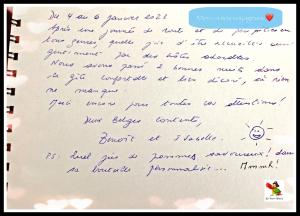 Du 4 au 6 janvier 2021
Après une journée de route et de pluie
tous genres, quelle joie d'être accueillis aussi
gentiment par des hôtes adorables.
Nous avons passé 2 bonnes nuits dans
ce gîte confortable et bien décoré, où rien
ne manque.
Merci encore pour toutes ces attentions!
Deux Belges contents,
Benoît et Isabelle.
PS: Quel jus de pommes savoureux! dans
sa bouteille personnalisée... Mmmh!